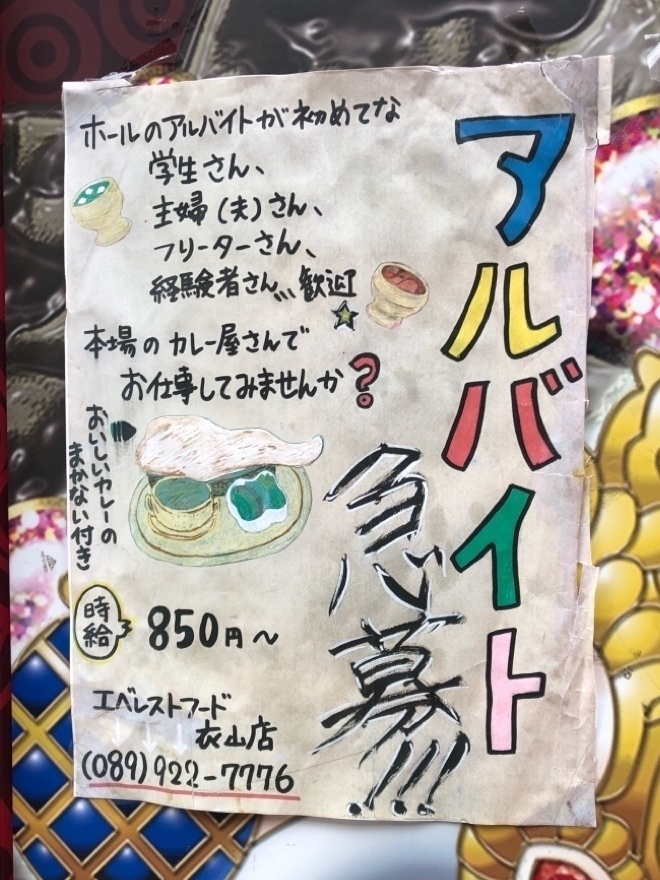 アルバイト
急募!!!
ホールのアルバイトが初めてな
学生さん、
主婦(夫)さん、
フリーターさん、
経験者さん、、、歓迎
本場のカレー屋さんで
お仕事してみませんか?
おいしいカレーの
まかない付き
時給
850円〜
エベレストフード
衣山店
(089)922-7776